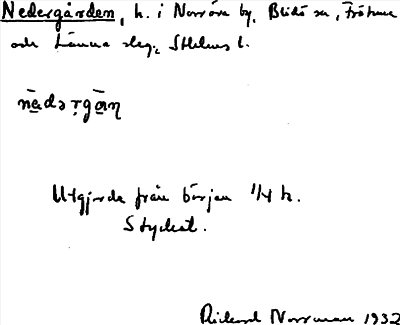 Nedergården, h. i Norröra by, Blidö sn, Frötuna
och Länna slg, Sthlms l.
Utgjorde från början 1/4 h.
Styckat.
Rickard Norrman 1932